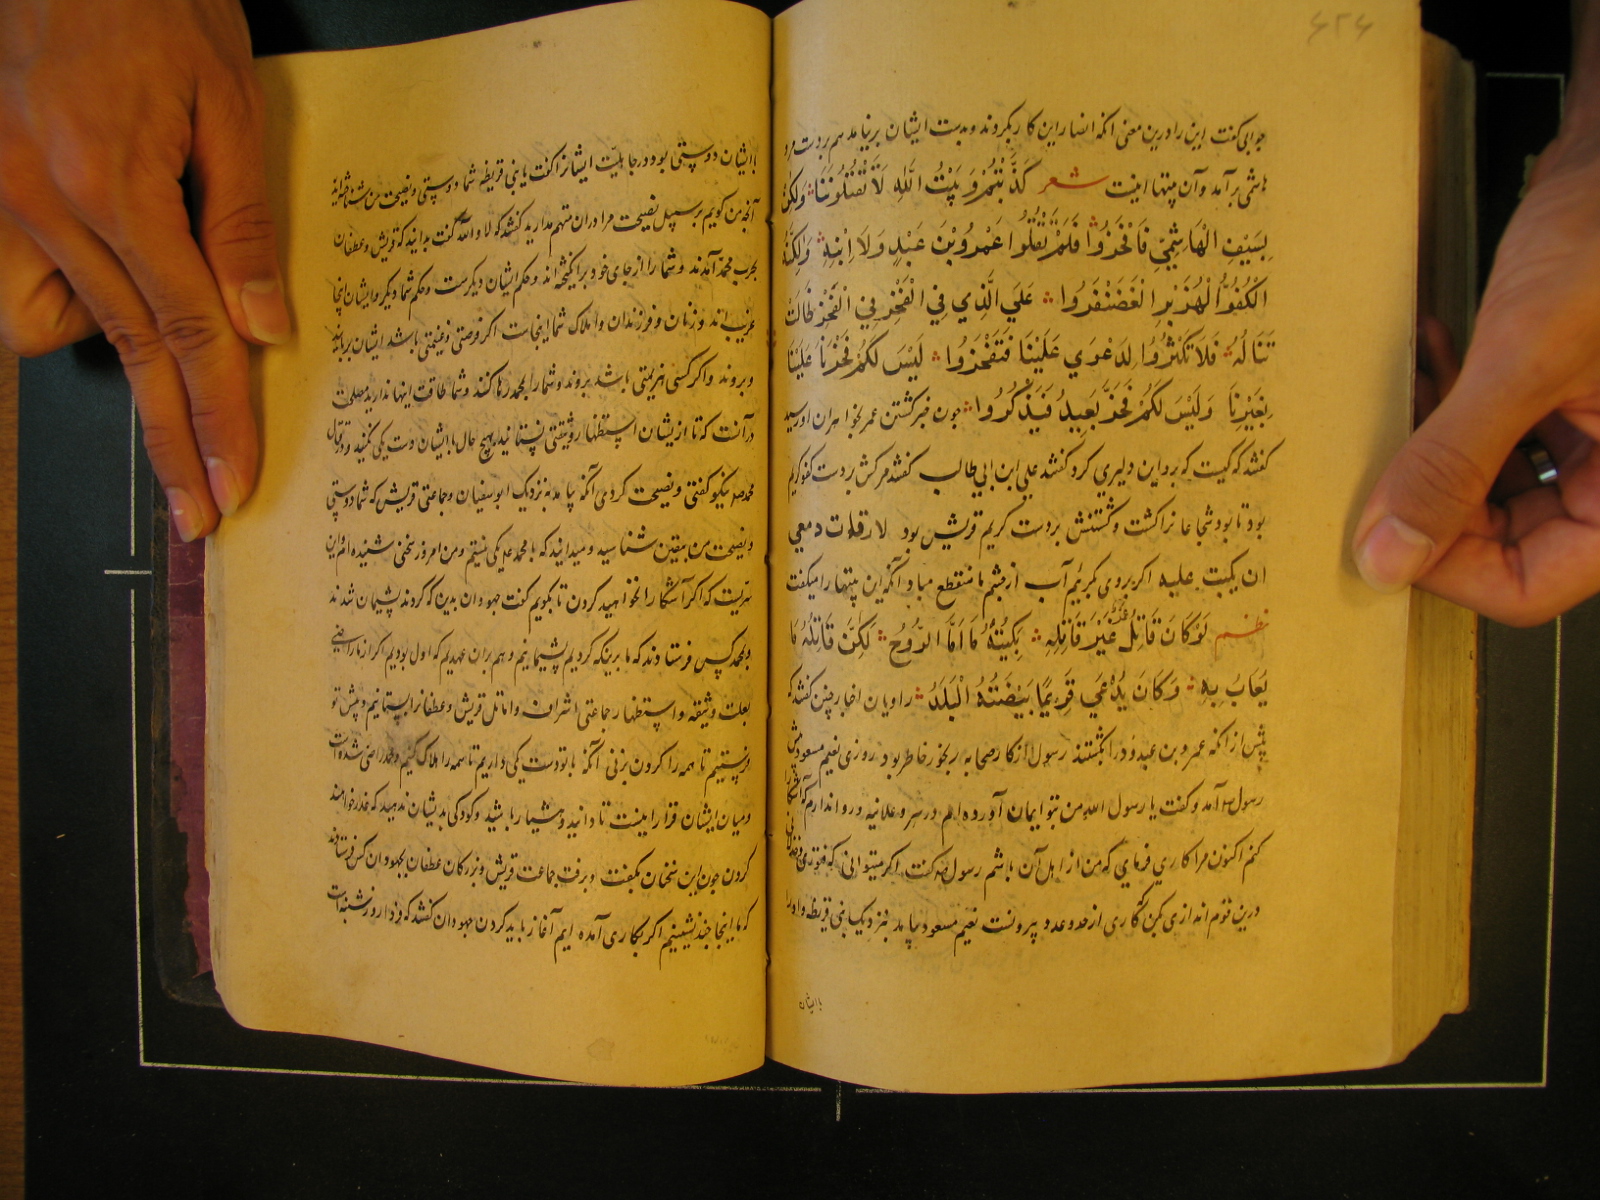 ۴۲۴
جوابی گفت این را درین معنی آنکه انصار این کار بکردند و بدست ایشان برنیامد هم بر دست مرد
هاشمی برآمد و آن بیتها اینست شعر كَذَبْتُمْ وَبَيْتُ اللّٰهِ لَا تَقْتُلُونَنَا وَلٰكِنْ
بِسَيْفِ الْهَاشِمِيِّ فَافْخَرُوا فَلَمْ تَقْتُلُوا عَمْرَو بْنَ عَبْدٍ وَلَا ابْنِهِ وَلٰكِنَّهُ
الْكُفُوُّ الْهُزَبْرِ الْغَضَنْفَرُوا عَلِي الَّذِي فِي الْفَخْرِ فِي الْفَخْرِ طَالَتْ
تَنَالَهُ فَلَا تَكْثَرُوا لِدَعْوَي عَلَيْنَا فَتَفْخَرُوا لَيْسَ لَكُمْ فَخْرًا عَلَيْنَا
بِغَيْرِنَا وَلَيْسَ لَكُمْ فَخْرٌ بَعِيدُ فَيَذْكُرُوا چون خبر کشتن عمر بخواهران او رسید
گفتند که کیست که برو این دلیری کرد گفتند علی ابن ابی طالب گفتند مرگش بر دست کفو کریم
بود تا بود شجاعانرا کشت و کشتنش بر دست کریم قریش بود لا رقات دمعي
ان بكيت عليه اگر بروی بگریم آب از چشم ما منقطع مباد آنکه این بیتها را میگفت
نظم لَوْ كَانَ قَاتِلُ عَمْرٍو غَيْرَ قَاتِلِهِ بَكِيتُهُ مَا اَقَامَ الرُّوحُ لٰكِنَّ قَاتِلَهُ مَا
يُعَابُ بِهِ وَكَانَ يُدْعَي قَدِيمًا بَيْضَتُهُ الْبَلَدُ راویان اخبار چنین گفتند که
پس از آنکه عمرو بن عبدود را بکشتند رسول از کار صحابه رنجور خاطر بود روزی نعیم مسعود پیش
رسول صم آمد و گفت یا رسول الله من بتو ایمان آورده ام در سر و علانیه و روا ندارم که آشکارا
کنم اکنون مرا کاری فرمای که من از اهل آن باشم رسول صم گفت اگر میتوانی که فتوری و خذلانی
درین قوم اندازی بکن که کاری از حد و عدد بیرونست نعیم مسعود بیامد بنزدیک بنی قریظه و او را
با ایشان
با ایشان دوستی بود در جاهلیت ایشانرا گفت یا بنی قریظه شما دوستی و نصیحت من شناخته اید
آنچه من گویم بر سبیل نصیحت مرا در ان متهم مدارید گفتند که لا والله گفت بدانید که قریش و غطفان
بحرب محمد آمدند و شما را از جای خود برانگیخته اند و حکم ایشان دیگرست و حکم شما دیگر و ایشان اینجا
غریب اند و زنان و فرزندان و املاک شما اینجاست اگر فرصتی و غنیمتی باشد ایشان بربایند
و بروند و اگر کسی هزیمتی باشد بروند و شما را بمحمد رها کنند و شما طاقت اینها ندارید مصلحت
در آنست که تا از یشان استظهار و وثیقتی نستانید بهیچ حال با ایشان دست یکی نکنید و در قتال
محمد صم نیکو گفتی و نصیحت کردی آنکه بیامد به نزدیک ابوسفیان و جماعتی قریش که شما دوستی
و نصیحت من بیقین شناسید و میدانید که با محمد علم یکی نیستم و من امروز سخنی شنیده ام و این
سریست که اگر آشکارا نخواهید کردن تا بگویم گفت جهودان بدین که کردند پشیمان شدند
و بمحمد کس فرستادند که ما برینکه کردیم پشیمانیم و هم بران عهدیم که اول بودیم اگر از ما راضی
بعلت وثیقه و استظهار جماعتی اشراف و اماثل قریش و غطفانرا بستانیم و پیش تو
فرستیم تا همه را گردن بزنی آنکه با تو دست یکی داریم تا همه را هلاک کنیم و محمد راضی شده است
و میان ایشان قرار اینست تا دانید و هشیار باشید و کودکی بدیشان ندهید که غدر خواهند
کردن چون این سخنان بگفت و برفت جماعت قریش و بزرگان غطفان بجهودان کس فرستادند
که ما اینجا چند نشینیم اگر بکاری آمده ایم آغاز باید کردن جهودان گفتند که فردا روز شنبه است